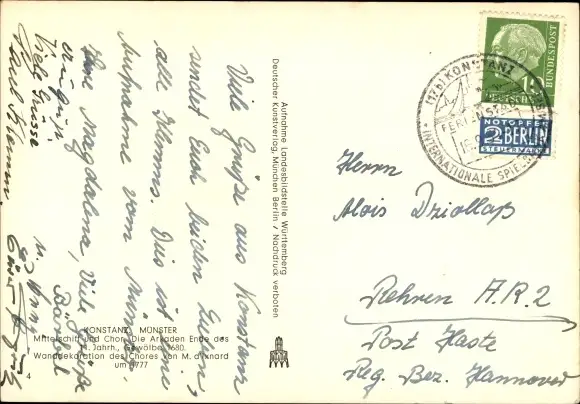 Viele Grüße aus Konstanz
sendet Euch beiden Lieben,
alle Klemms. Dies ist eine
Aufnahme vom Münster.
Eure Magdalena, Viele Grüße
Bärbel
Viele Grüsse
Paul Klemm.
KONSTANZ MÜNSTER
Mittelschiff und Chor. Die Arkaden Ende des
Jahrh., Gewölbe 1680.
Wanddekoration des Chores von M. d'Ixnard
um 1777
4
Aufnahme Landesbildstelle Württemberg
Deutscher Kunstverlag, München Berlin / Nachdruck verboten
DEUTSCHE BUNDESPOST
10
NOTOPFER
2 BERLIN
STEUERMARKE
(17b) KONSTANZ
INTERNATIONALE
Herrn
Alois Dziollaß
Rehren A.R.2
Post Haste
Reg. Bez. Hannover